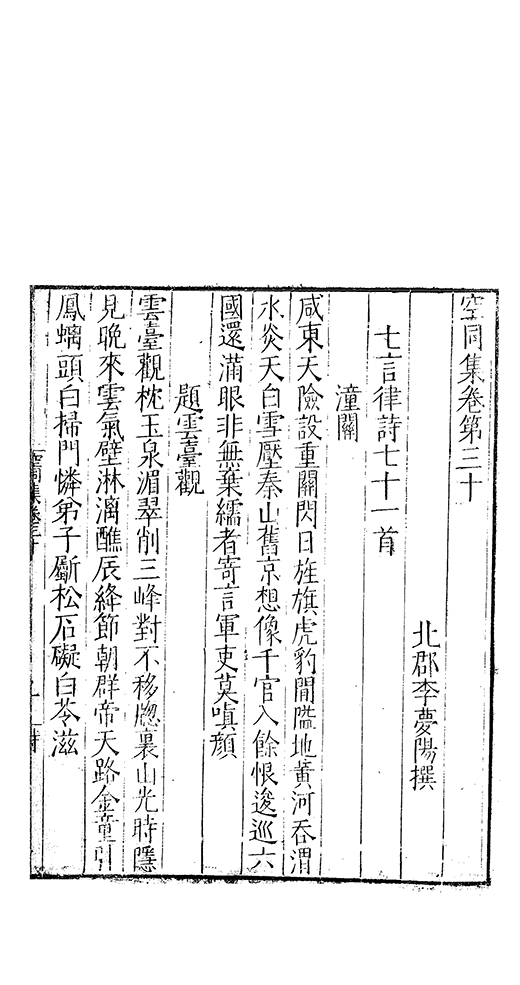 空同集卷第三十
北郡李夢陽撰
七言律詩七十一首
潼關
咸東天險設重關閃日旌旗虎豹閒隘地黃河吞渭
水炎天白雪壓秦山舊京想像千官入餘恨逡巡六
國還滿眼非無棄繻者寄言軍吏莫嗔顏
題雲臺觀
雲臺觀枕玉泉湄翠削三峰對不移牕裏山光時隱
見晚來雲氣壁淋漓醮辰絳節朝群帝天路金童引
鳳螭頭白掃門憐弟子斸松石礙白苓滋
空同集卷三十